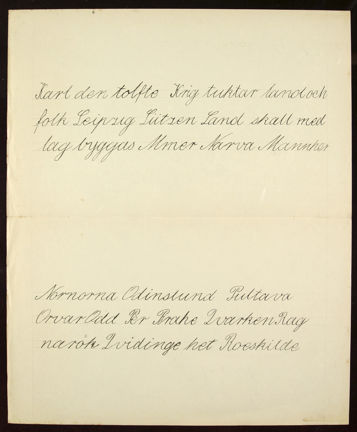 Karl den tolfte Krig tuktar land och
folk Leipzig Lützen Land skall med
lag byggas Mmer Narva Mannher
Nornorna Odinslund Pultava
Orvar Odd Per Brahe Qvarken Rag
narök Qvidinge het Roeskilde